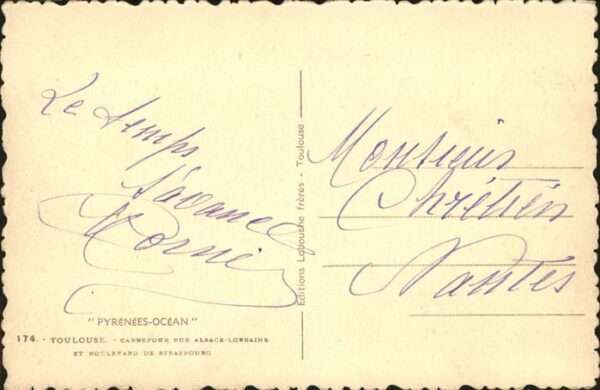 Le temps
s'avance
Monsieur
Chrétien
Nantes
Editions Labouche frères - Toulouse
"PYRÉNÉES-OCÉAN"
174. - TOULOUSE. - CARREFOUR RUE ALSACE-LORRAINE
ET BOULEVARD DE STRASBOURG